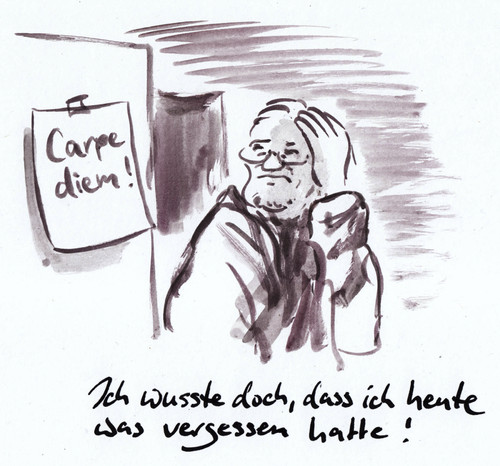 Carpe
diem!
Ich wusste doch, dass ich heute
was vergessen hatte!